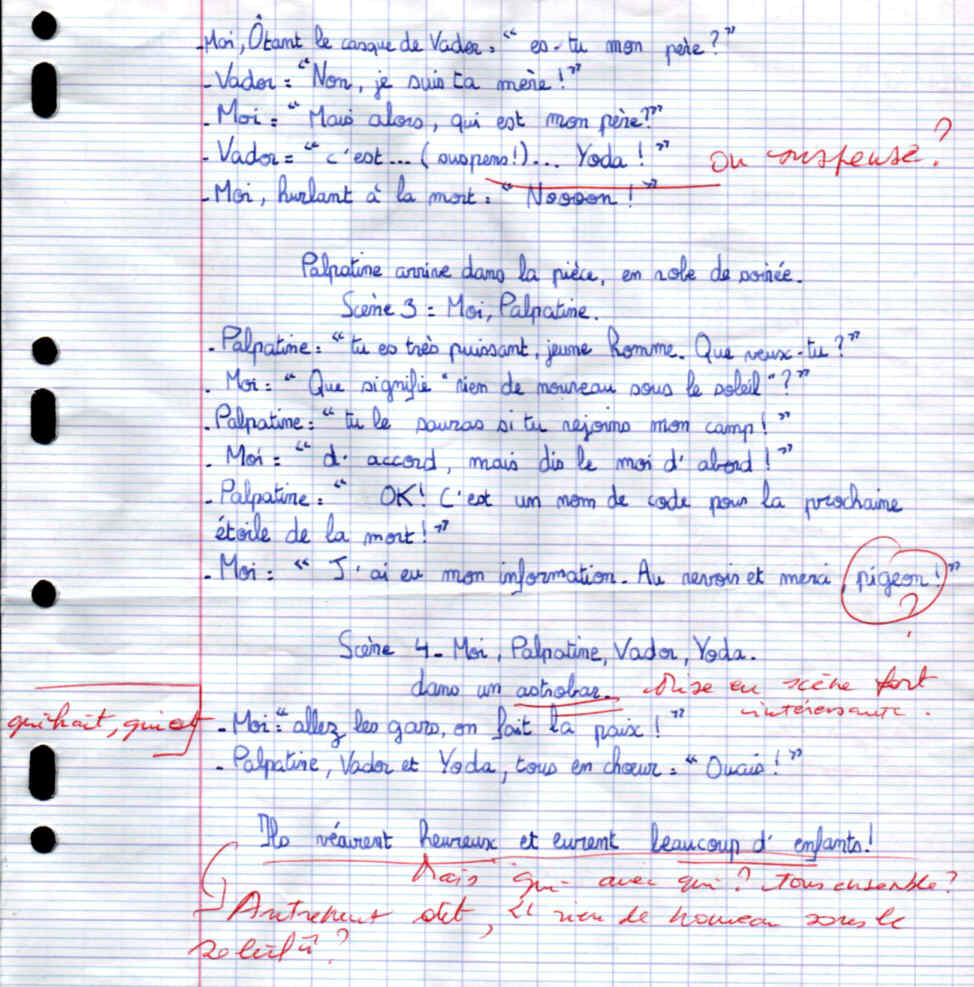 - Moi, Ôtant le casque de Vador : “ es-tu mon père ? ”
- Vador : “ Non, je suis ta mère ! ”
- Moi : “ Mais alors, qui est mon père ?”
- Vador : “ c'est ... ( suspens !) ... Yoda ! ” ou suspense ?
- Moi, hurlant à la mort : “ Nooooon ! ”
Palpatine arrive dans la pièce, en robe de soirée.
Scène 3 : Moi, Palpatine.
- Palpatine : “ tu es très puissant, jeune homme. Que veux-tu ? ”
- Moi : “ Que signifie “ rien de nouveau sous le soleil ” ? ”
- Palpatine : “ tu le sauras si tu rejoins mon camp ! ”
- Moi : “ d'accord, mais dis le moi d'abord ! ”
- Palpatine : “ OK ! C'est un nom de code pour la prochaine
étoile de la mort ! ”
- Moi : “ J'ai eu mon information. Au revoir et merci, pigeon ! ”
?
Scène 4 - Moi, Palpatine, Vador, Yoda.
dans un astrobar. Mise en scène fort
intéressante.
qui hait, qui est
- Moi : “ allez les gars, on fait la paix ! ”
- Palpatine, Vador et Yoda, tous en chœur : “ Ouais ! ”
Ils vécurent heureux et eurent beaucoup d'enfants !
Mais qui avec qui ? Tous ensemble ?
Autrement dit, “ rien de nouveau sous le
soleil ” ?